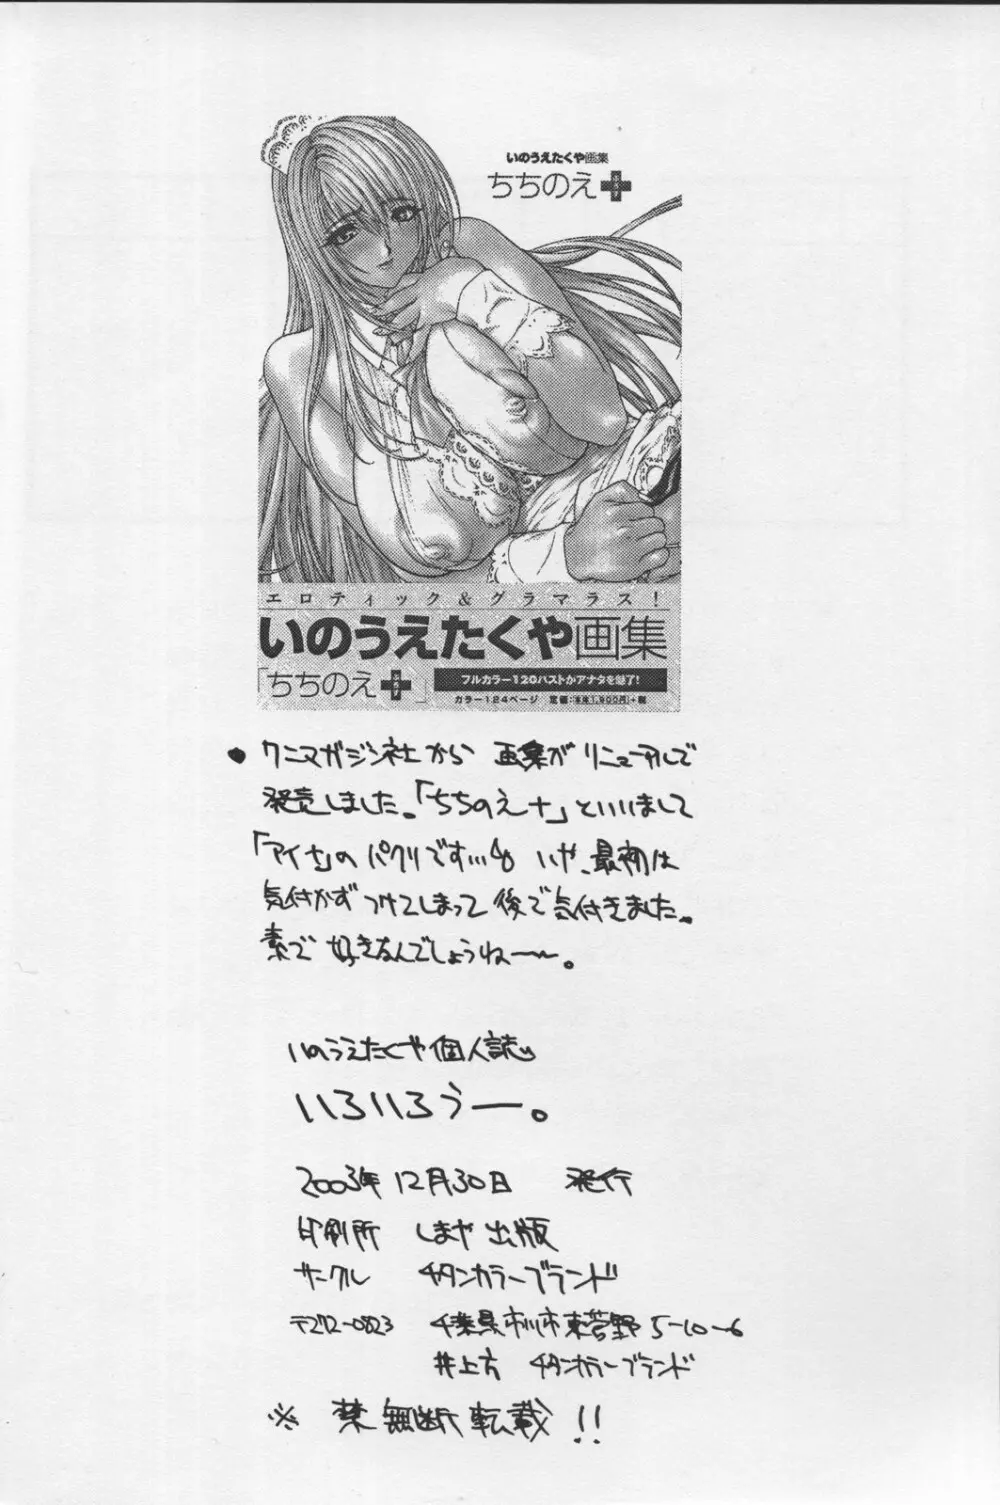 いのうえたくや画集
ちちのえ
エロティック&グラマラス!
いのうえたくや画集
「ちちのえ 」
フルカラー120バストがアナタを魅了!
カラー124ページ 定価:本体1,900円+税
● ワニマガジン社から 画集がリニューアルして
発売しました。「ちちのえ+」といいまして
「アイナ」の パクリです… いや、最初は
気付かず つけてしまって 後で気付きました。
素で 好きなんでしょうね〜〜。
いのうえたくや個人誌
いろいろうー。
2003年 12月30日 発行
印刷所 しまや出版
サークル チタンカラーブランド
〒272-0823 千葉県市川市東菅野5-10-6
井上方 チタンカラーブランド
※ 禁無断転載!!